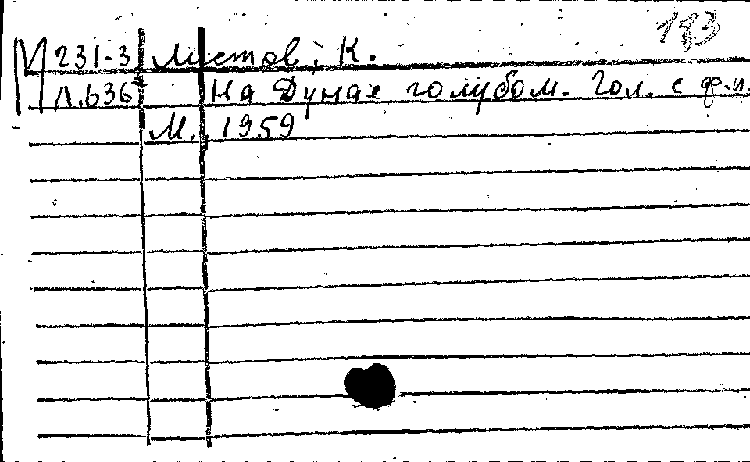 193
М 231-3 Листов, К.
Л.636 На Дунае голубом. Гол. с ф.п.
М., 1959